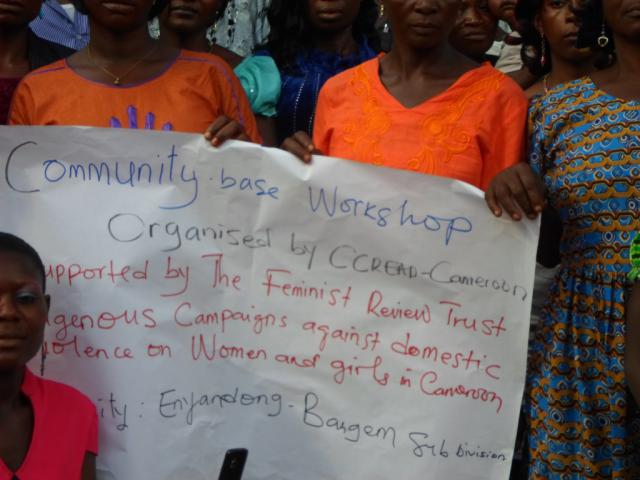 Community-base Workshop
Organised by CCREAD-Cameroon
upported by The Feminist Review Trust
genous Campaigns against domestic
iolence on Women and girls in Cameroon
ity: Enyandong-Bangem Sub Division